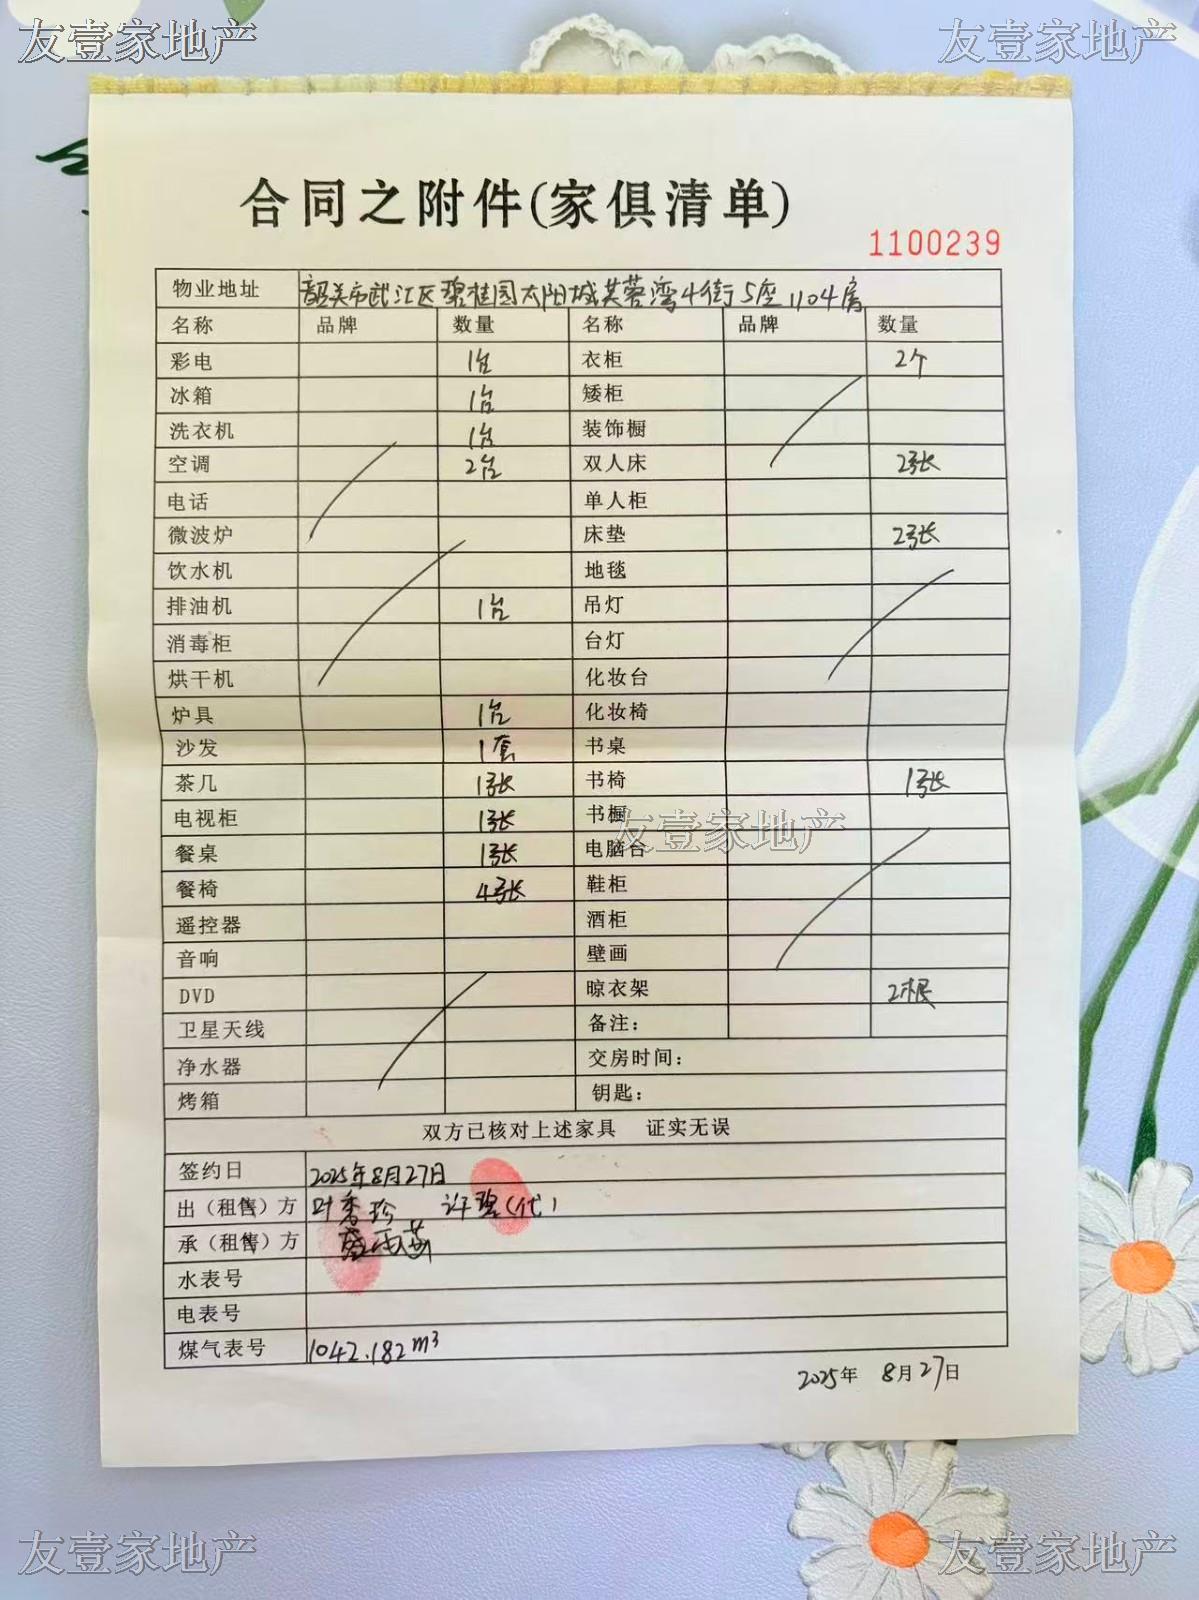 友壹家地产 友壹家地产
合同之附件(家俱清单)
1100239
物业地址 韶关市武江区碧桂园太阳城芙蓉湾4街5座1104房
名称 品牌 数量 名称 品牌 数量
彩电 1台 衣柜 2个
冰箱 1台 矮柜
洗衣机 1台 装饰橱
空调 2台 双人床 2张
电话 单人柜
微波炉 床垫 2张
饮水机 地毯
排油机 1台 吊灯
消毒柜 台灯
烘干机 化妆台
炉具 1台 化妆椅
沙发 1套 书桌
茶几 1张 书椅 1张
电视柜 1张 书橱
友壹家地产
餐桌 1张 电脑台
餐椅 4张 鞋柜
遥控器 酒柜
音响 壁画
DVD 晾衣架 2根
卫星天线 备注:
净水器 交房时间:
烤箱 钥匙:
双方已核对上述家具 证实无误
签约日 2025年8月27日
出(租售)方 叶秀珍 许碧(代)
承(租售)方
水表号
电表号
煤气表号 1042.182m³
2025年 8月27日
友壹家地产 友壹家地产